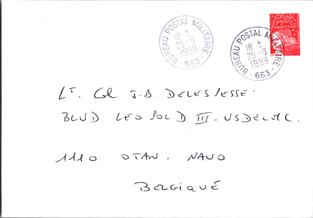 BUREAU POSTAL MILITAIRE
18 H
25-9
1999
663
BUREAU POSTAL MILITAIRE
18 H
25-9
1999
663
LT. Col J.B. DELESPESSE.
BLVD LEOPOLD III. USDELMC.
1110. OTAN. NAVO
BELGIQUE